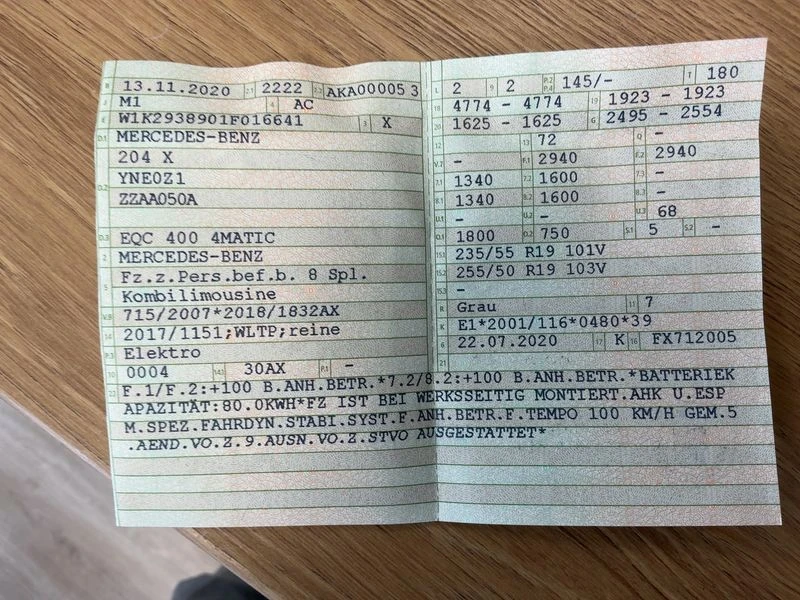 B 13.11.2020 2.1 2222 2.2 AKA00005 3
J M1 4 AC
E W1K2938901F016641 3 X
D.1 MERCEDES-BENZ
D.2 204 X
YNE0Z1
ZZAA050A
D.3 EQC 400 4MATIC
2 MERCEDES-BENZ
5 Fz.z.Pers.bef.b. 8 Spl.
Kombilimousine
V.9 715/2007*2018/1832AX
14 2017/1151;WLTP;reine
P.3 Elektro
10 0004 14.1 30AX P.1 -
L 2 9 2 P.2 P.4 145/- T 180
18 4774 - 4774 19 1923 - 1923
20 1625 - 1625 G 2495 - 2554
12 13 72 Q -
V.7 - F.1 2940 F.2 2940
7.1 1340 7.2 1600 7.3 -
8.1 1340 8.2 1600 8.3 -
U.1 - U.2 - U.3 68
O.1 1800 O.2 750 S.1 5 S.2 -
15.1 235/55 R19 101V
15.2 255/50 R19 103V
15.3 -
R Grau 11 7
K E1*2001/116*0480*39
6 22.07.2020 17 K 16 FX712005
21
22 F.1/F.2:+100 B.ANH.BETR.*7.2/8.2:+100 B.ANH.BETR.*BATTERIEK
APAZITÄT:80.0KWH*FZ IST BEI WERKSSEITIG MONTIERT.AHK U.ESP
M.SPEZ.FAHRDYN.STABI.SYST.F.ANH.BETR.F.TEMPO 100 KM/H GEM.5
.AEND.VO.Z.9.AUSN.VO.Z.STVO AUSGESTATTET*